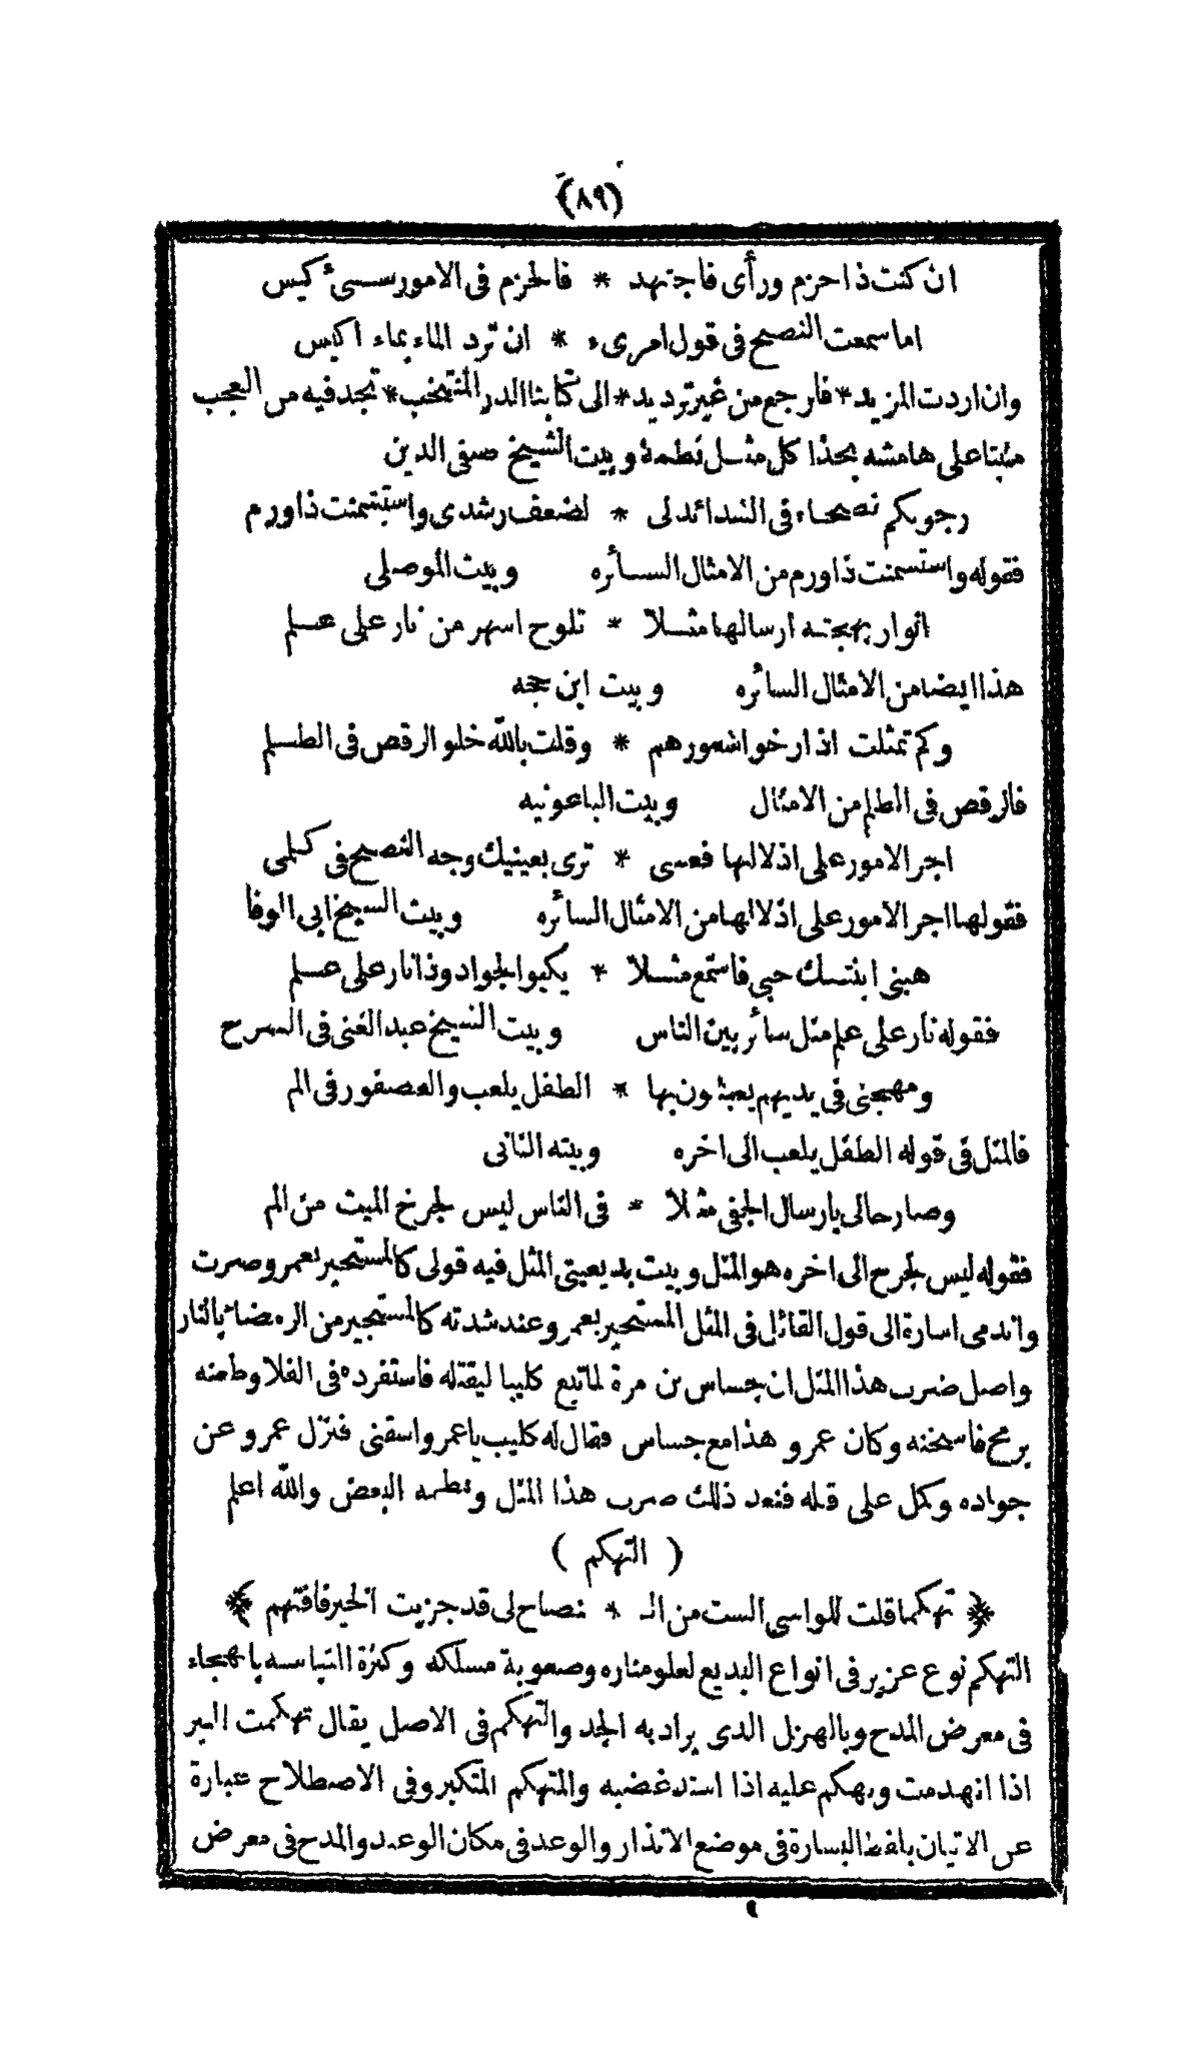 (٨٩)
ان كنت ذا حزم ورأى فاجتهد * فالحزم فى الامور سئ كيس
اما سمعت النصيح فى قول امرىء * ان ترد الماء بماء اكيس
وان اردت المزيد * فارجع من غير ترديد * الى كتابنا الدر المنتخب * تجد فيه من العجب
مثبتا على هامشه بحذا كل مثل نظمة وبيت الشيخ صفى الدين
رجوتكم نصحاء فى الشدائد لى * لضعف رشدى واستسمنت ذا ورم
فقوله واستسمنت ذا ورم من الامثال السائره وبيت الموصلى
انوار بهجته ارسالها مثلا * تلوح اشهر من نار على علم
هذا ايضا من الامثال السائره وبيت ابن حجه
وكم تمثلت اذ ارخوا شعورهم * وقلت بالله خلوا الرقص فى الظلم
فالرقص فى الظلم من الامثال وبيت الباعونيه
اجر الامور على اذلالها فعسى * ترى بعينيك وجه النصح فى كلمى
فقولها اجر الامور على اذلالها من الامثال السائره وبيت الشيخ ابى الوفا
هبنى ابتسك حبى فاستمع مثلا * يكبو الجواد وذا نار على علم
فقوله نار على علم مثل سائر بين الناس وبيت الشيخ عبد الغنى فى الشرح
ومهجتى فى يديهم يعبثون بها * الطفل يلعب والعصفور فى الم
فالمثل فى قوله الطفل يلعب الى اخره وبيته الثانى
وصار حالى بارسال الجفى مثلا * فى الناس ليس لجرح الميت من الم
فقوله ليس لجرح الى اخره هو المثل وبيت بديعيتى المثل فيه قولى كالمستجير بعمرو صرت
واندمى اشارة الى قول القائل فى المثل المستجير بعمرو عند شدته كالمستجير من الرمضاء بالنار
واصل ضرب هذا المثل ان جساس بن مرة لما تبع كليبا ليقتله فاستفرده فى الفلا وطعنه
برمح فاسخنه وكان عمرو هذا مع جساس فقال له كليب يا عمرو اسقنى فنزل عمرو عن
جواده وكمل على قتله فبعد ذلك ضرب هذا المثل ونظمه البعض والله اعلم
( التهكم )
﴿ تهكما قلت للواشى الست من الـ * نصاح لى قد جزيت الخير فاقتهم ﴾
التهكم نوع عزيز فى انواع البديع لعلو مناره وصعوبة مسلكه وكثرة التباسه بالهجاء
فى معرض المدح وبالهزل الذى يراد به الجد والتهكم فى الاصل يقال تهكمت البير
اذا انهدمت وتهكم عليه اذا اشتد غضبه والمتهكم المتكبر وفى الاصطلاح عبارة
عن الاتيان بلفظ البشارة فى موضع الانذار والوعد فى مكان الوعيد والمدح فى معرض